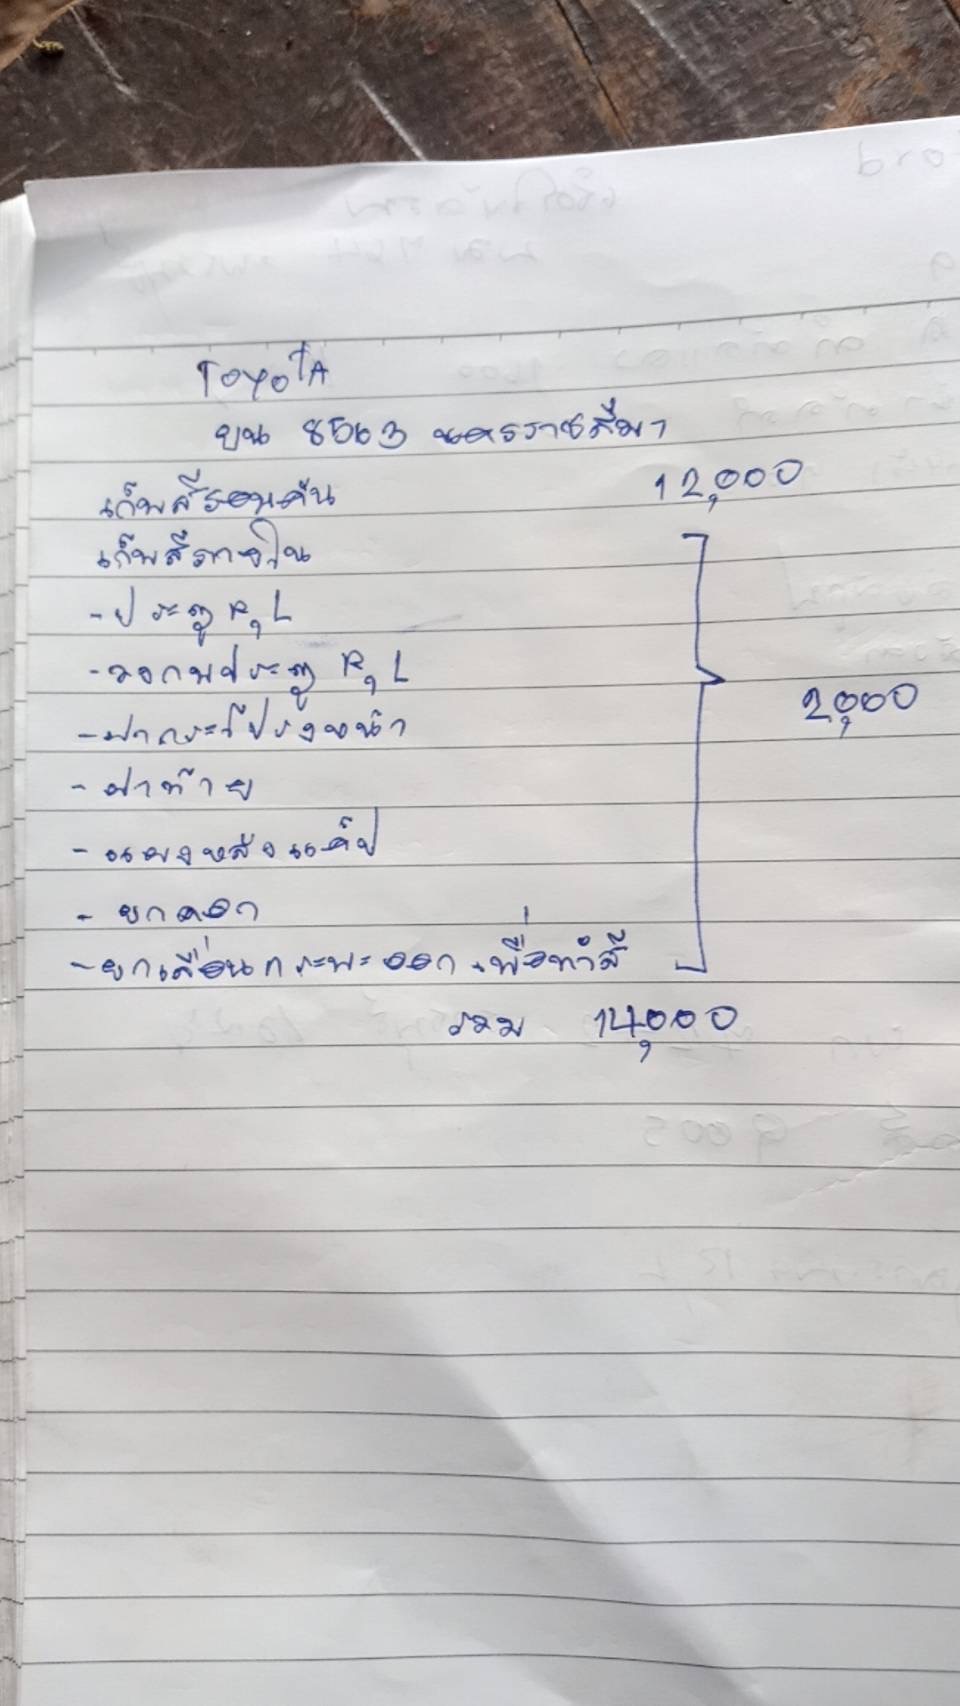 TOYOTA
ขน 8563 นครราชสีมา
เก็บสีรอบคัน 12,000
เก็บสีภายใน
- ประตู R, L
- วงกบประตู R, L
- ฝากระโปรงหน้า
- ฝาท้าย
- แผงหลังแค็ป
2,000
- ยกเลื่อนกระบะออก เพื่อทำสี
รวม 14,000